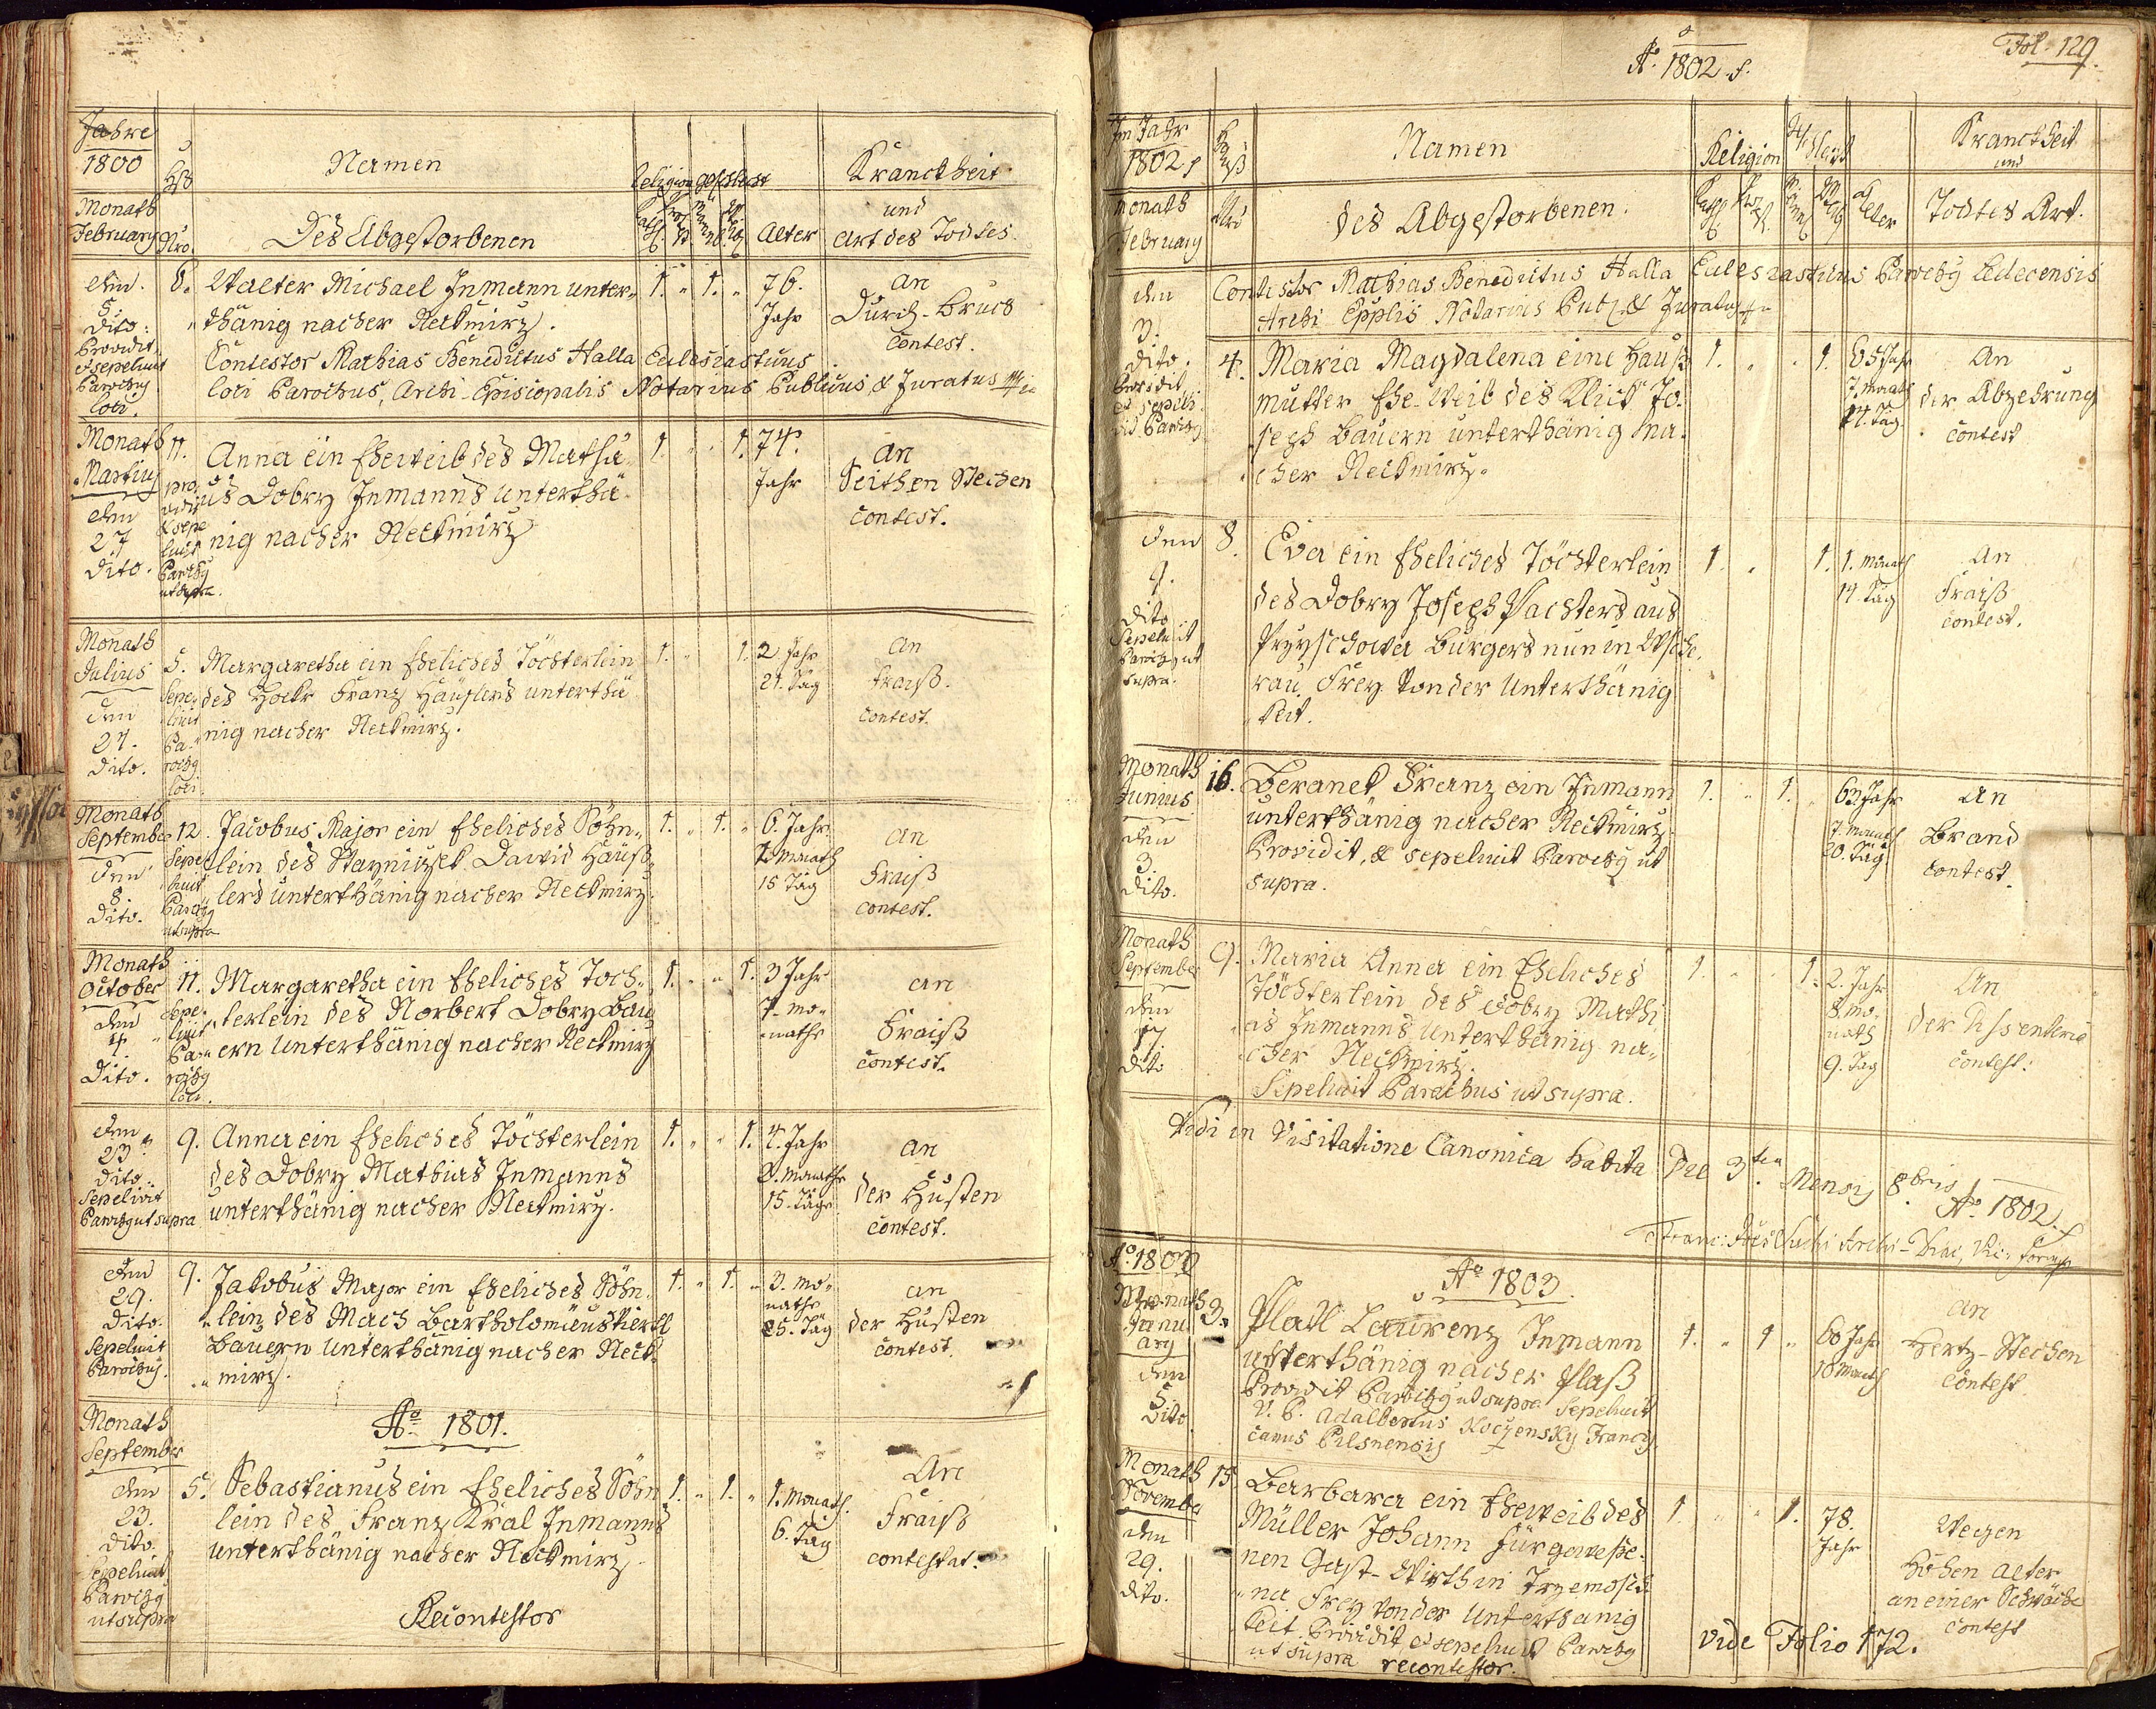 Jahre
1800
Hß
Namen
Religion
Geschlecht
Kranckheit
Monath
February
Nro.
Des Abgestorbenen
Alter
und
Art des Todtes.
den
5.
dito.
Providit
et sepeliuit
Parochus
loci.
6. Walter Michael Inmann unter-
thänig nacher Neckmirz.
1. " 1. " 76.
Jahr
An
Durch-Bruch
contest.
Contestor Mathias Benedictus Halla Eclesiasticus
loci Parochus, Archi-Episcopalis Notarius Publicus, & Juratus
Monath
Martius
den
27
dito.
11.
pro
vidit
& sepe
liuit
Parochus
ut supra.
Anna ein Eheweib des Mathi-
as Dobry Inmanns unterthä-
nig nacher Neckmirz
1. " " 1. 74.
Jahr
An
Seithen Stechen
contest.
Monath
Julius
den
27.
dito.
5.
Sepe-
liuit
Pa-
rochus
loci.
Margaretha ein Eheliches Töchterlein
des Hock Franz Häuslers unterthä
nig nacher Neckmirz.
1. " " 1. 2 Jahr
21. Tag
An
Fraiß.
contest.
Monath
September
den
8.
dito.
12.
Sepe
liuit
Parochus
ut supra
Jacobus Major ein Eheliches Söhn-
lein des Stayniczek Dawid Häuß-
lers unterthänig nacher Neckmirz.
1. " 1. " 6. Jahr
7. Monath
15 Tag
An
Fraiß
contest.
Monath
October
den
4.
Dito.
11.
Sepe-
liuit
Pa-
rochus
loci.
Margaretha ein Eheliches Töch-
terlein des Norbert Dobry Bau
ern Unterthänig nacher Neckmirz
1. " " 1. 3 Jahr
7. mo-
nathe
an
Fraiß
contest.
den
23.
dito.
Sepelivit
Parochus ut supra
9. Anna ein Eheliches Töchterlein
des Dobry Mathias Inmanns
unterthänig nacher Neckmirz.
1. " " 1. 4. Jahr
3. Monathe
15. Tage
an
der Husten
contest.
den
29.
dito.
Sepeliuit
Parochus.
9. Jakobus Major ein Eheliches Söhn-
lein des Mach Bartholomäus Viertl
Bauern Unterthänig nacher Neck-
mirz.
1. " 1. " 3. mo-
nathe
25. Tag
an
der Husten
contest.
Ao 1801.
Monath
September
den
23.
dito.
Sepeliuit
Parochus
ut supra
5. Sebastianus ein Eheliches Söhn
lein des Franz Kral Inmanns
unterthänig nacher Neckmirz.
1. " 1. " 1. Monath.
6. Tag
An
Fraiß
contestat.
Recontestor
Ao 1802.
Fol. 129.
Im Jahr
1802.
Hauß
Namen
Religion
Kranckheit
und
Monath
February
Nro
des Abgestorbenen.
Alter
Todtes Art.
Contestor Mathias Benedictus Halla Eclesiasticus Parochus Ledecensis
Archi Epplis Notarius Publ. & Juratus
den
3.
dito.
Providit
et sepeli
vid. Parochus
4. Maria Magdalena eine Hauß
mutter Ehe-Weib des Klick Jo-
seph Bauern unterthänig na-
cher Neckmirz.
1. " " 1. 65 Jahr
7. Monath
14. Tag
An
der Abzehrung
contest
den
9.
dito
Sepeliuit
Parochus ut
supra.
8. Eva ein Eheliches Töchterlein
des Dobry Joseph Pachters aus
burgers nun in Wsche-
rau. Frey von der Unterthänig
keit.
1. " 1. 1. Monath
14. Tag
An
Fraiß
contest.
Monath
Junius
den
3.
dito.
16. Beranek Franz ein Inmann
unterthänig nacher Neckmirz.
Providit, & sepeliuit Parochus ut
supra.
1. " 1. 63 Jahr
7. monath
20. Tag
An
Brand
contest.
Monath
September
den
17.
dito
9. Maria Anna ein Eheliches
Töchterlein des Dobry Mathi-
as Inmanns Unterthänig na-
cher Neckmirz.
Sepeliuit Parochus ut supra.
1. " " 1. 2. Jahr
8. mo-
nath
9. Tag
An
der Disenteria
contest.
Vidi in Visitatione Canonica habita Die 3tia Mensis 8bris
Ao 1802.
Ao 1803
Ao 1803.
Monath
Janu
ary
den
5.
Dito
3. Platl Laurenz Inmann
unterthänig nacher Plaß
Providit Parochus ut supra Sepeliuit
V. P. Adalbertus Koczensky Francis
canus Pilsnensis
1. " 1 " 60 Jahr
10 Monath
an
Hertz-Stechen
contest.
Monath
November
den
29.
dito.
15. Barbara ein Eheweib des
Müller Johann fürgewese-
nen Gast-Wirth in Trzemosch
na Frey von der Unterthänig
keit. Providit, et sepeliuit Parochus
ut supra recontestor.
1. " " 1. 78.
Jahr
Wegen
Hohen alter
an einer Schwäche
contest
vide Folio 172.